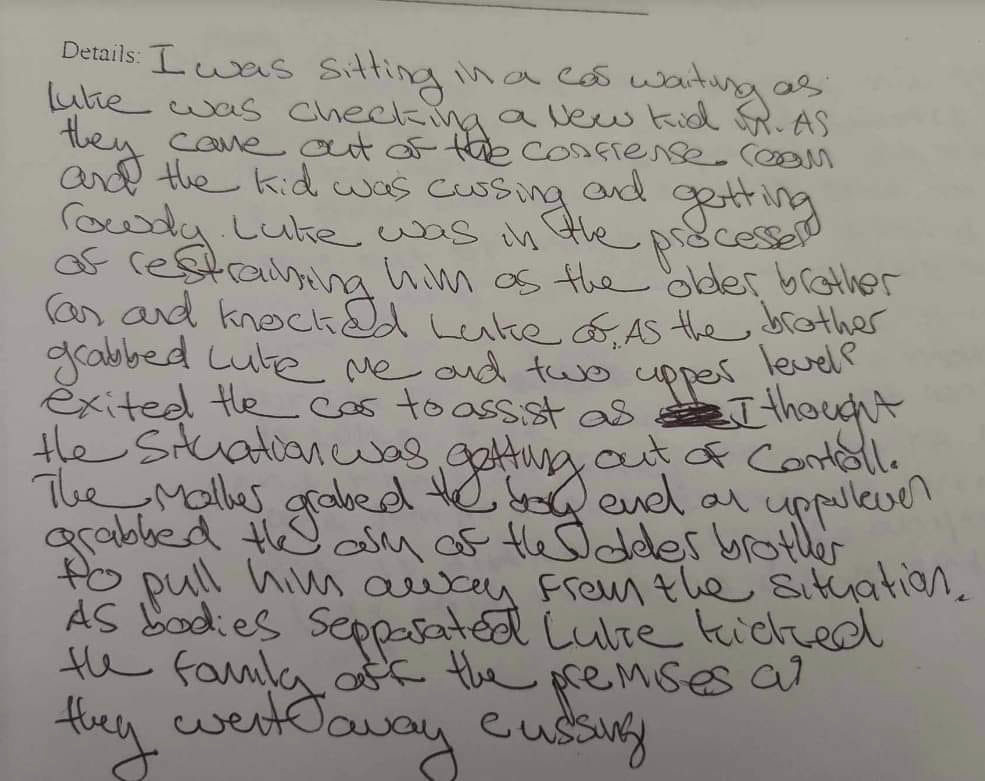 Details: I was sitting in a car waiting as
Luke was checking a New kid in. AS
they came out of the confrense room
and the kid was cussing and getting
rowdy. Luke was in the processes
of restraining him as the older brother
ran and knocked Luke of. AS the brother
grabbed Luke Me and two upper levels
exited the car to assist as I thought
the Situation was getting out of Controll.
The Mother grabed the boy end an upperlevel
grabbed the arm of the older brother
to pull him away from the situation.
AS bodies Sepparated Luke kicked
the family off the premises as
they went away cussing